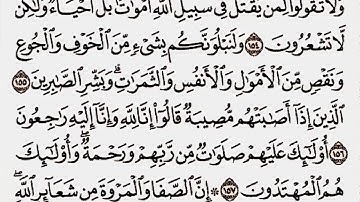 وَلَا تَقُولُوا۟ لِمَن يُقْتَلُ فِى سَبِيلِ ٱللَّهِ أَمْوَٰتٌۢ بَلْ أَحْيَآءٌ وَلَٰكِن
لَّا تَشْعُرُونَ ١٥٤ وَلَنَبْلُوَنَّكُم بِشَىْءٍ مِّنَ ٱلْخَوْفِ وَٱلْجُوعِ
وَنَقْصٍ مِّنَ ٱلْأَمْوَٰلِ وَٱلْأَنفُسِ وَٱلثَّمَرَٰتِ ۗ وَبَشِّرِ ٱلصَّٰبِرِينَ ١٥٥
ٱلَّذِينَ إِذَآ أَصَٰبَتْهُم مُّصِيبَةٌ قَالُوٓا۟ إِنَّا لِلَّهِ وَإِنَّآ إِلَيْهِ رَٰجِعُونَ
١٥٦ أُو۟لَٰٓئِكَ عَلَيْهِمْ صَلَوَٰتٌ مِّن رَّبِّهِمْ وَرَحْمَةٌ ۖ وَأُو۟لَٰٓئِكَ
هُمُ ٱلْمُهْتَدُونَ ١٥٧ ۞ إِنَّ ٱلصَّفَا وَٱلْمَرْوَةَ مِن شَعَآئِرِ ٱللَّهِ ۖ